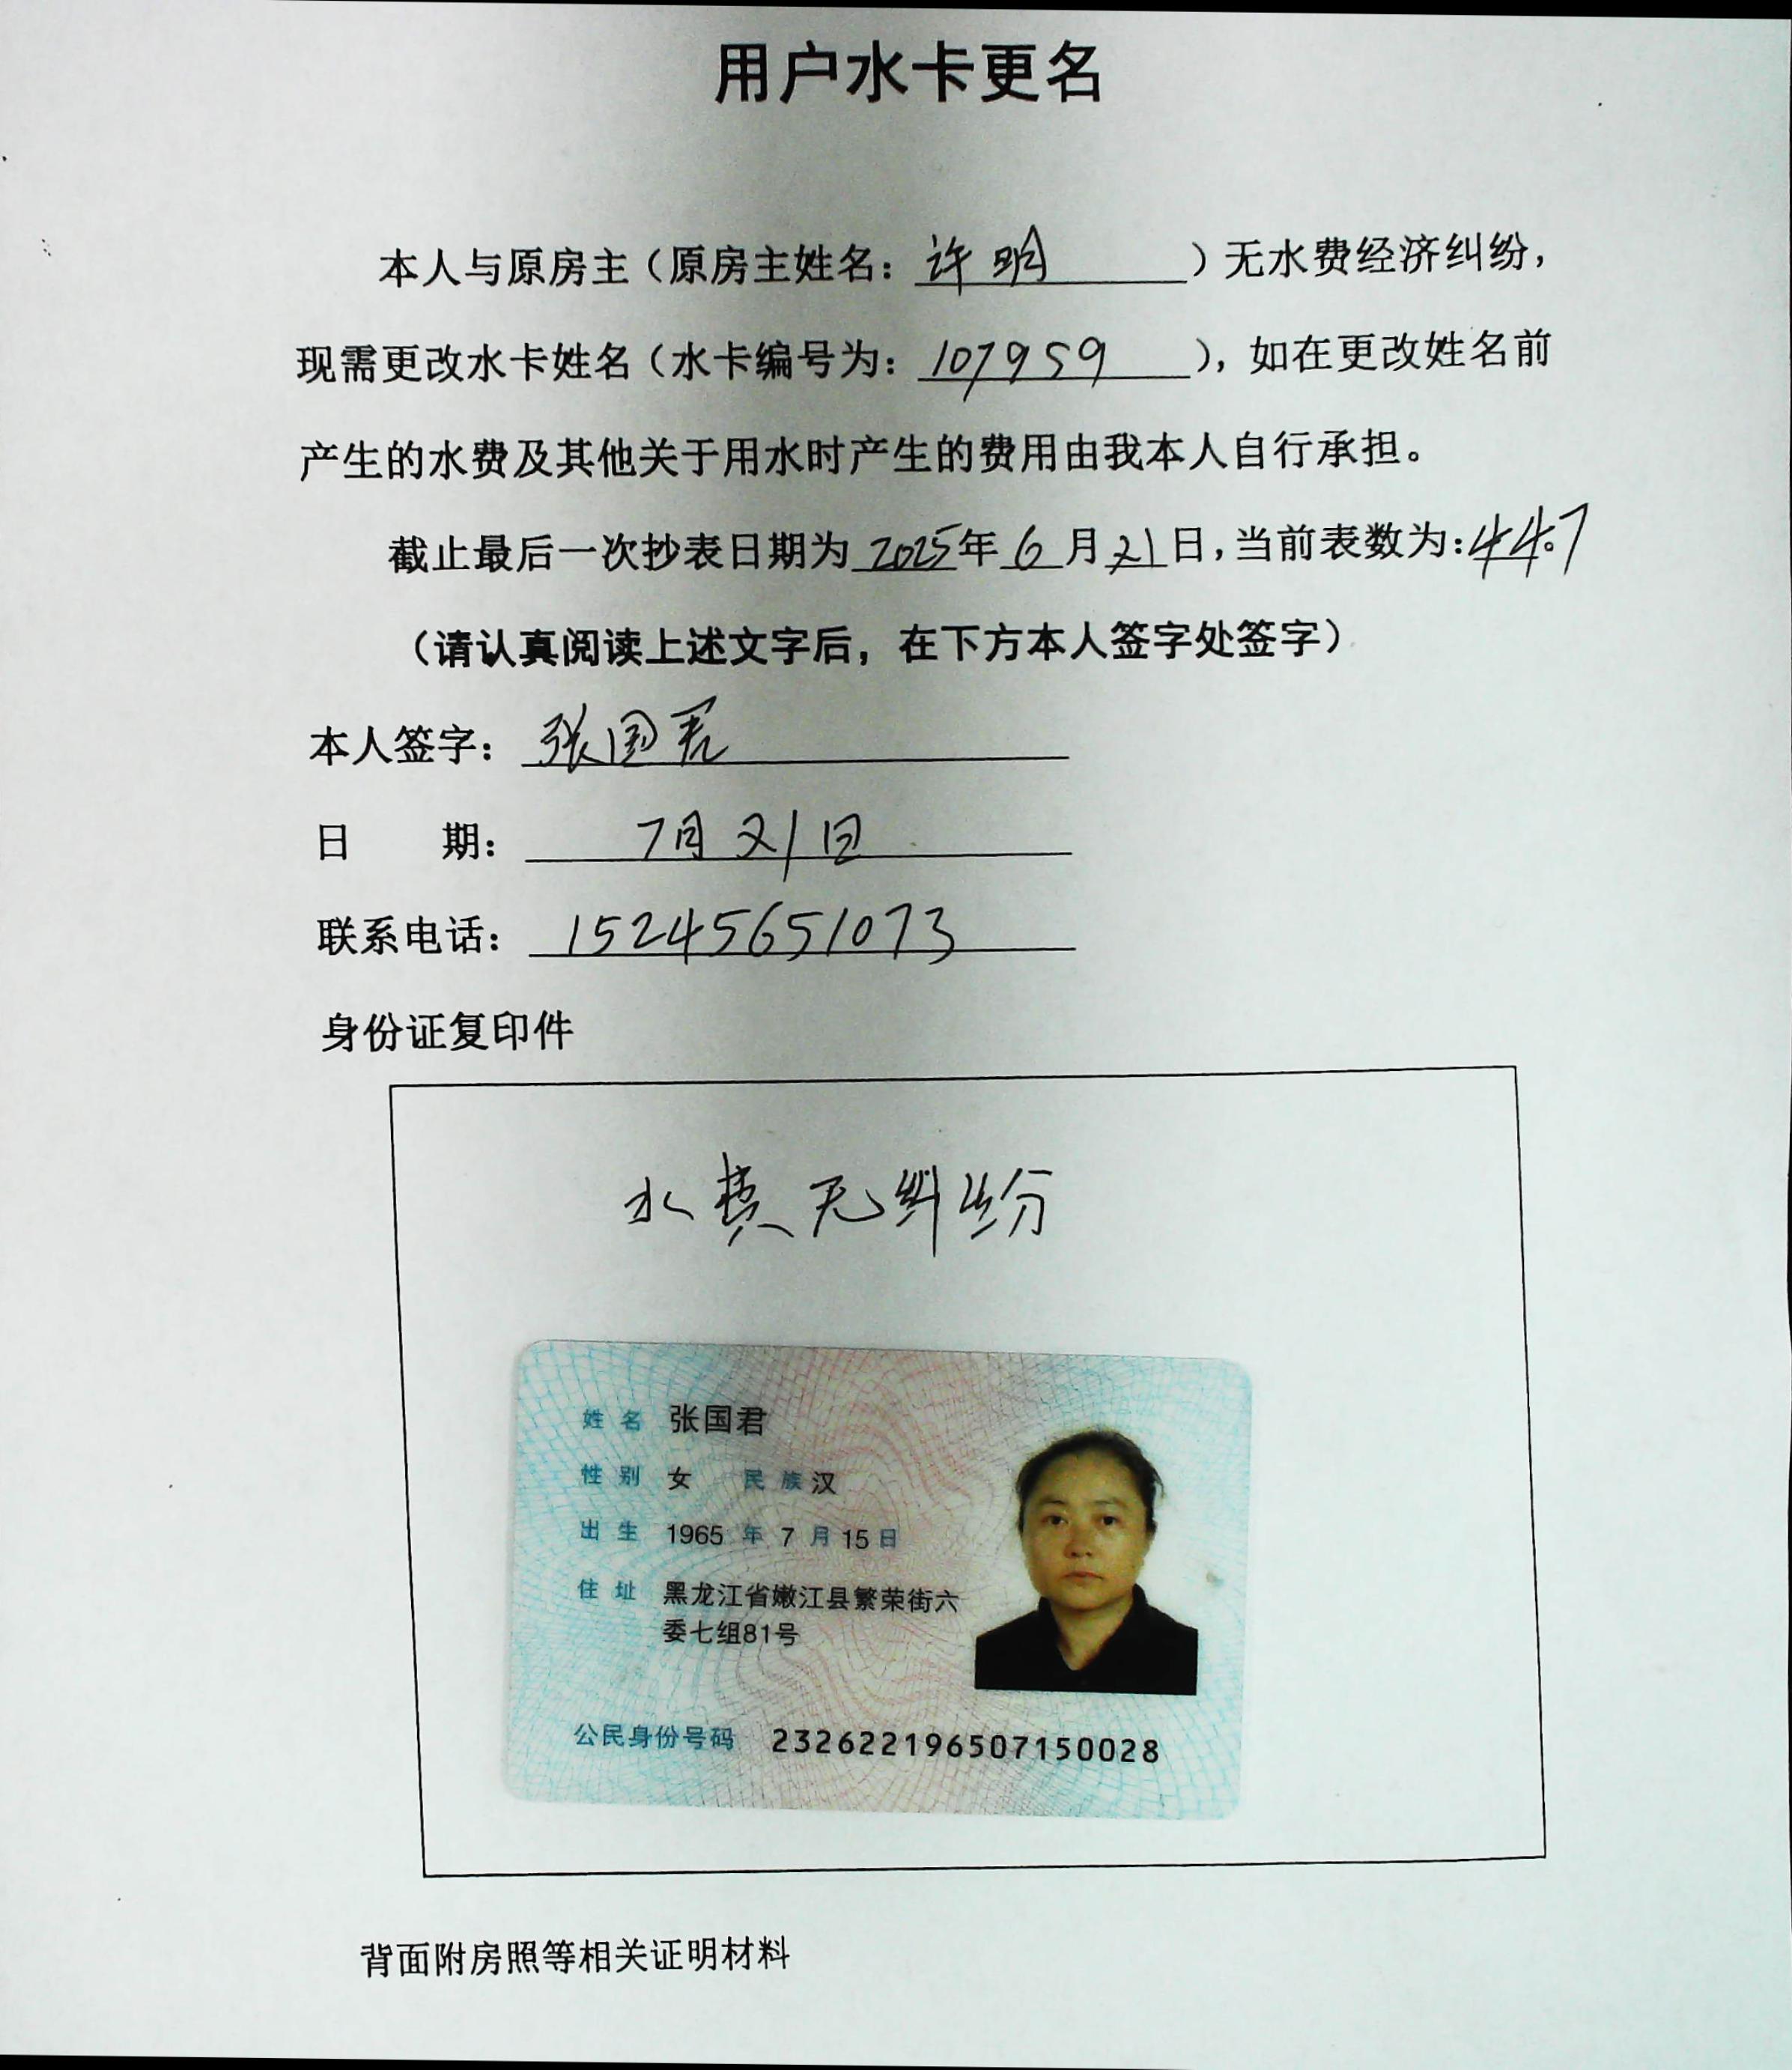 用户水卡更名
本人与原房主（原房主姓名：许明）无水费经济纠纷，
现需更改水卡姓名（水卡编号为：107959），如在更改姓名前
产生的水费及其他关于用水时产生的费用由我本人自行承担。
截止最后一次抄表日期为2025年6月21日，当前表数为：447
（请认真阅读上述文字后，在下方本人签字处签字）
本人签字：张国君
日 期：7月21日
联系电话：15245651073
身份证复印件
水费无纠纷
姓名 张国君
性别 女 民族 汉
出生 1965年7月15日
住址 黑龙江省嫩江县繁荣街六
委七组81号
公民身份号码 232622196507150028
背面附房照等相关证明材料